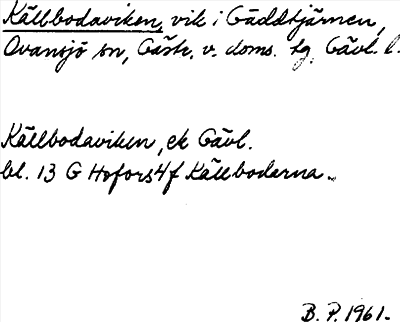 Källbodaviken, vik i Gäddtjärnen,
Ovansjö sn, Gästr. v. doms. tg, Gävl. l.
Källbodaviken, ek Gävl.
bl. 13 G Hofors 4f Källbodarna.
B. P. 1961.